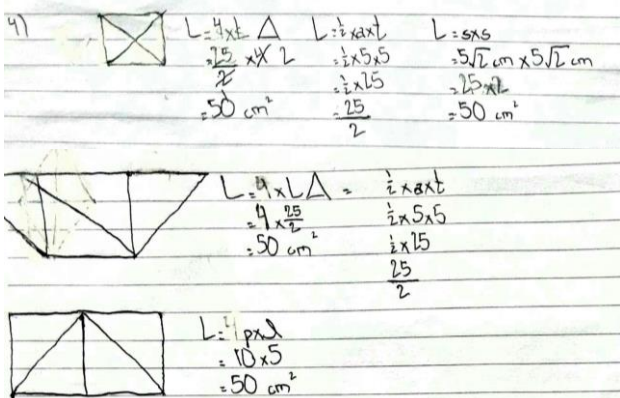 4)
L = 4 x L △
= 25/2 x 4 2
= 50 cm²
L = ½ x a x t
= ½ x 5 x 5
= ½ x 25
= 25/2
L = s x s
= 5√2 cm x 5√2 cm
= 25 x 2
= 50 cm²
L = 4 x L △ =
= 4 x 25/2
= 50 cm²
½ x a x t
½ x 5 x 5
½ x 25
25/2
L = p x l
= 10 x 5
= 50 cm²